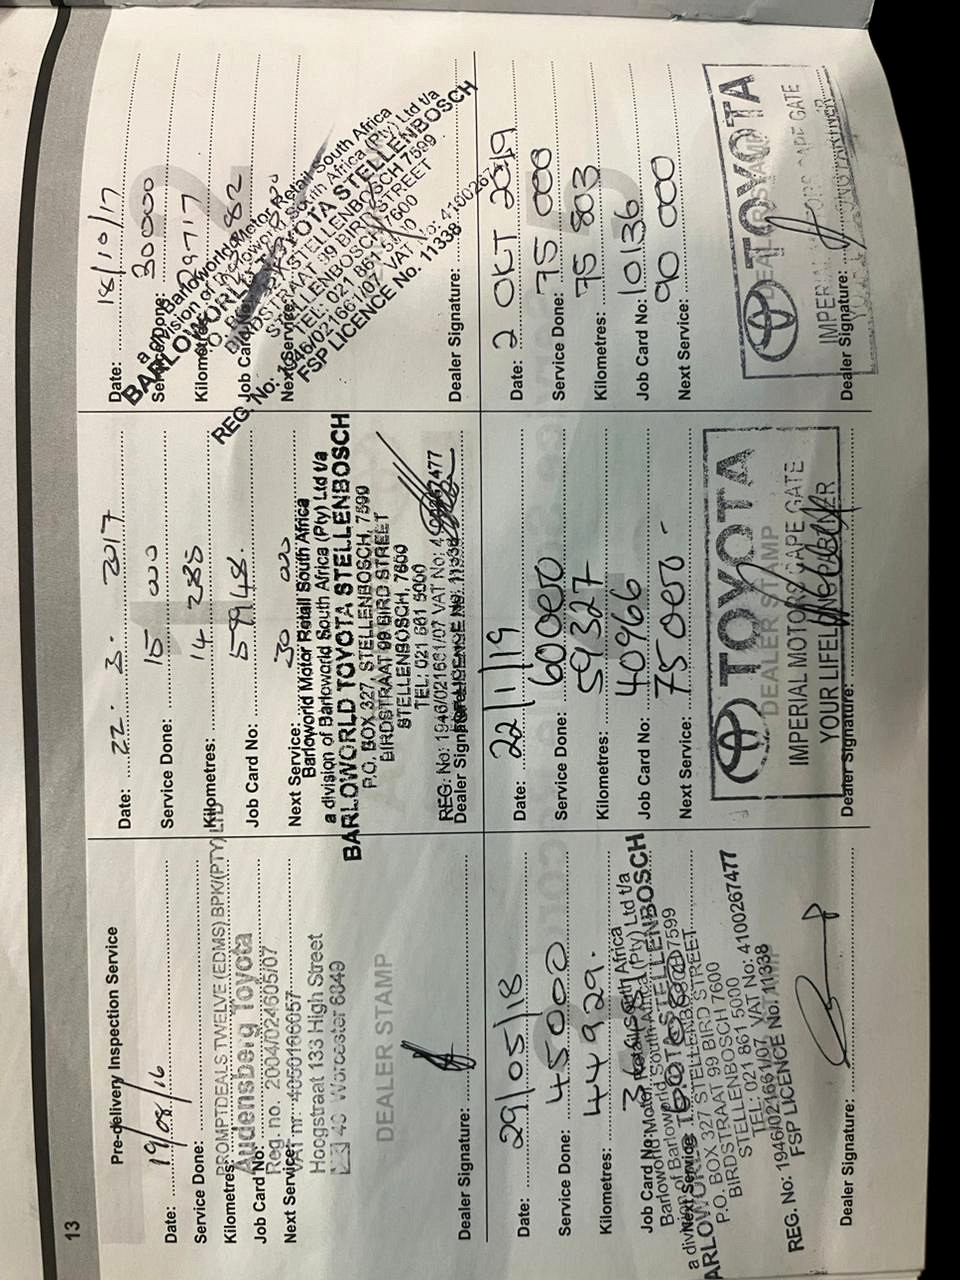 13
Pre-delivery Inspection Service
Date: 19/08/16
Service Done:
PROMPTDEALS TWELVE (EDMS) BPK/(PTY) LTD
Kilometres:
Audensberg Toyota
Job Card No:
Reg. no. 2004/024605/07
Next Service:
VAT nr.
Hoogstraat 133 High Street
Worcester 6849
DEALER STAMP
Dealer Signature:
Date: 22. 3. 2017
Service Done: 15 000
Kilometres: 14 285
Job Card No: 59948.
Next Service: 30 000
Barloworld Motor Retail South Africa
a division of Barloworld South Africa (Pty) Ltd t/a
BARLOWORLD TOYOTA STELLENBOSCH
P.O. BOX 327, STELLENBOSCH, 7599
BIRDSTRAAT 99 BIRD STREET
STELLENBOSCH, 7600
TEL: 021 861 5000
REG: No: 1946/021661/07 VAT No:
Dealer Signature:
Date: 18/10/17
Service Done: 30000
Kilometres: 29717
Job Card No:
Next Service:
Barloworld Motor Retail South Africa
a division of Barloworld South Africa (Pty) Ltd t/a
BARLOWORLD TOYOTA STELLENBOSCH
STELLENBOSCH 7599
BIRDSTRAAT 99 BIRD STREET
STELLENBOSCH, 7600
TEL: 021 861 5000
REG. No: 1946/021661/07 VAT No:
FSP LICENCE No. 11338
Dealer Signature:
Date: 29/05/18
Service Done: 45000
Kilometres: 44929.
Job Card No:
Barloworld Motor Retail South Africa
a division of Barloworld South Africa (Pty) Ltd t/a
Next Service: 60000
BARLOWORLD TOYOTA STELLENBOSCH
P.O. BOX 327 STELLENBOSCH 7599
BIRDSTRAAT 99 BIRD STREET
STELLENBOSCH 7600
TEL: 021 861 5000
REG. No: 1946/021661/07 VAT No: 4100267477
FSP LICENCE No. 11338
Dealer Signature:
Date: 22/1/19
Service Done: 60000
Kilometres: 59327
Job Card No: 40966
Next Service: 75000 -
TOYOTA
DEALER STAMP
IMPERIAL MOTORS CAPE GATE
YOUR LIFELONG PARTNER
Dealer Signature:
Date: 2 OKT 2019
Service Done: 75 000
Kilometres: 75 803
Job Card No: 10136
Next Service: 90 000
TOYOTA
DEALER STAMP
IMPERIAL MOTORS CAPE GATE
Dealer Signature: